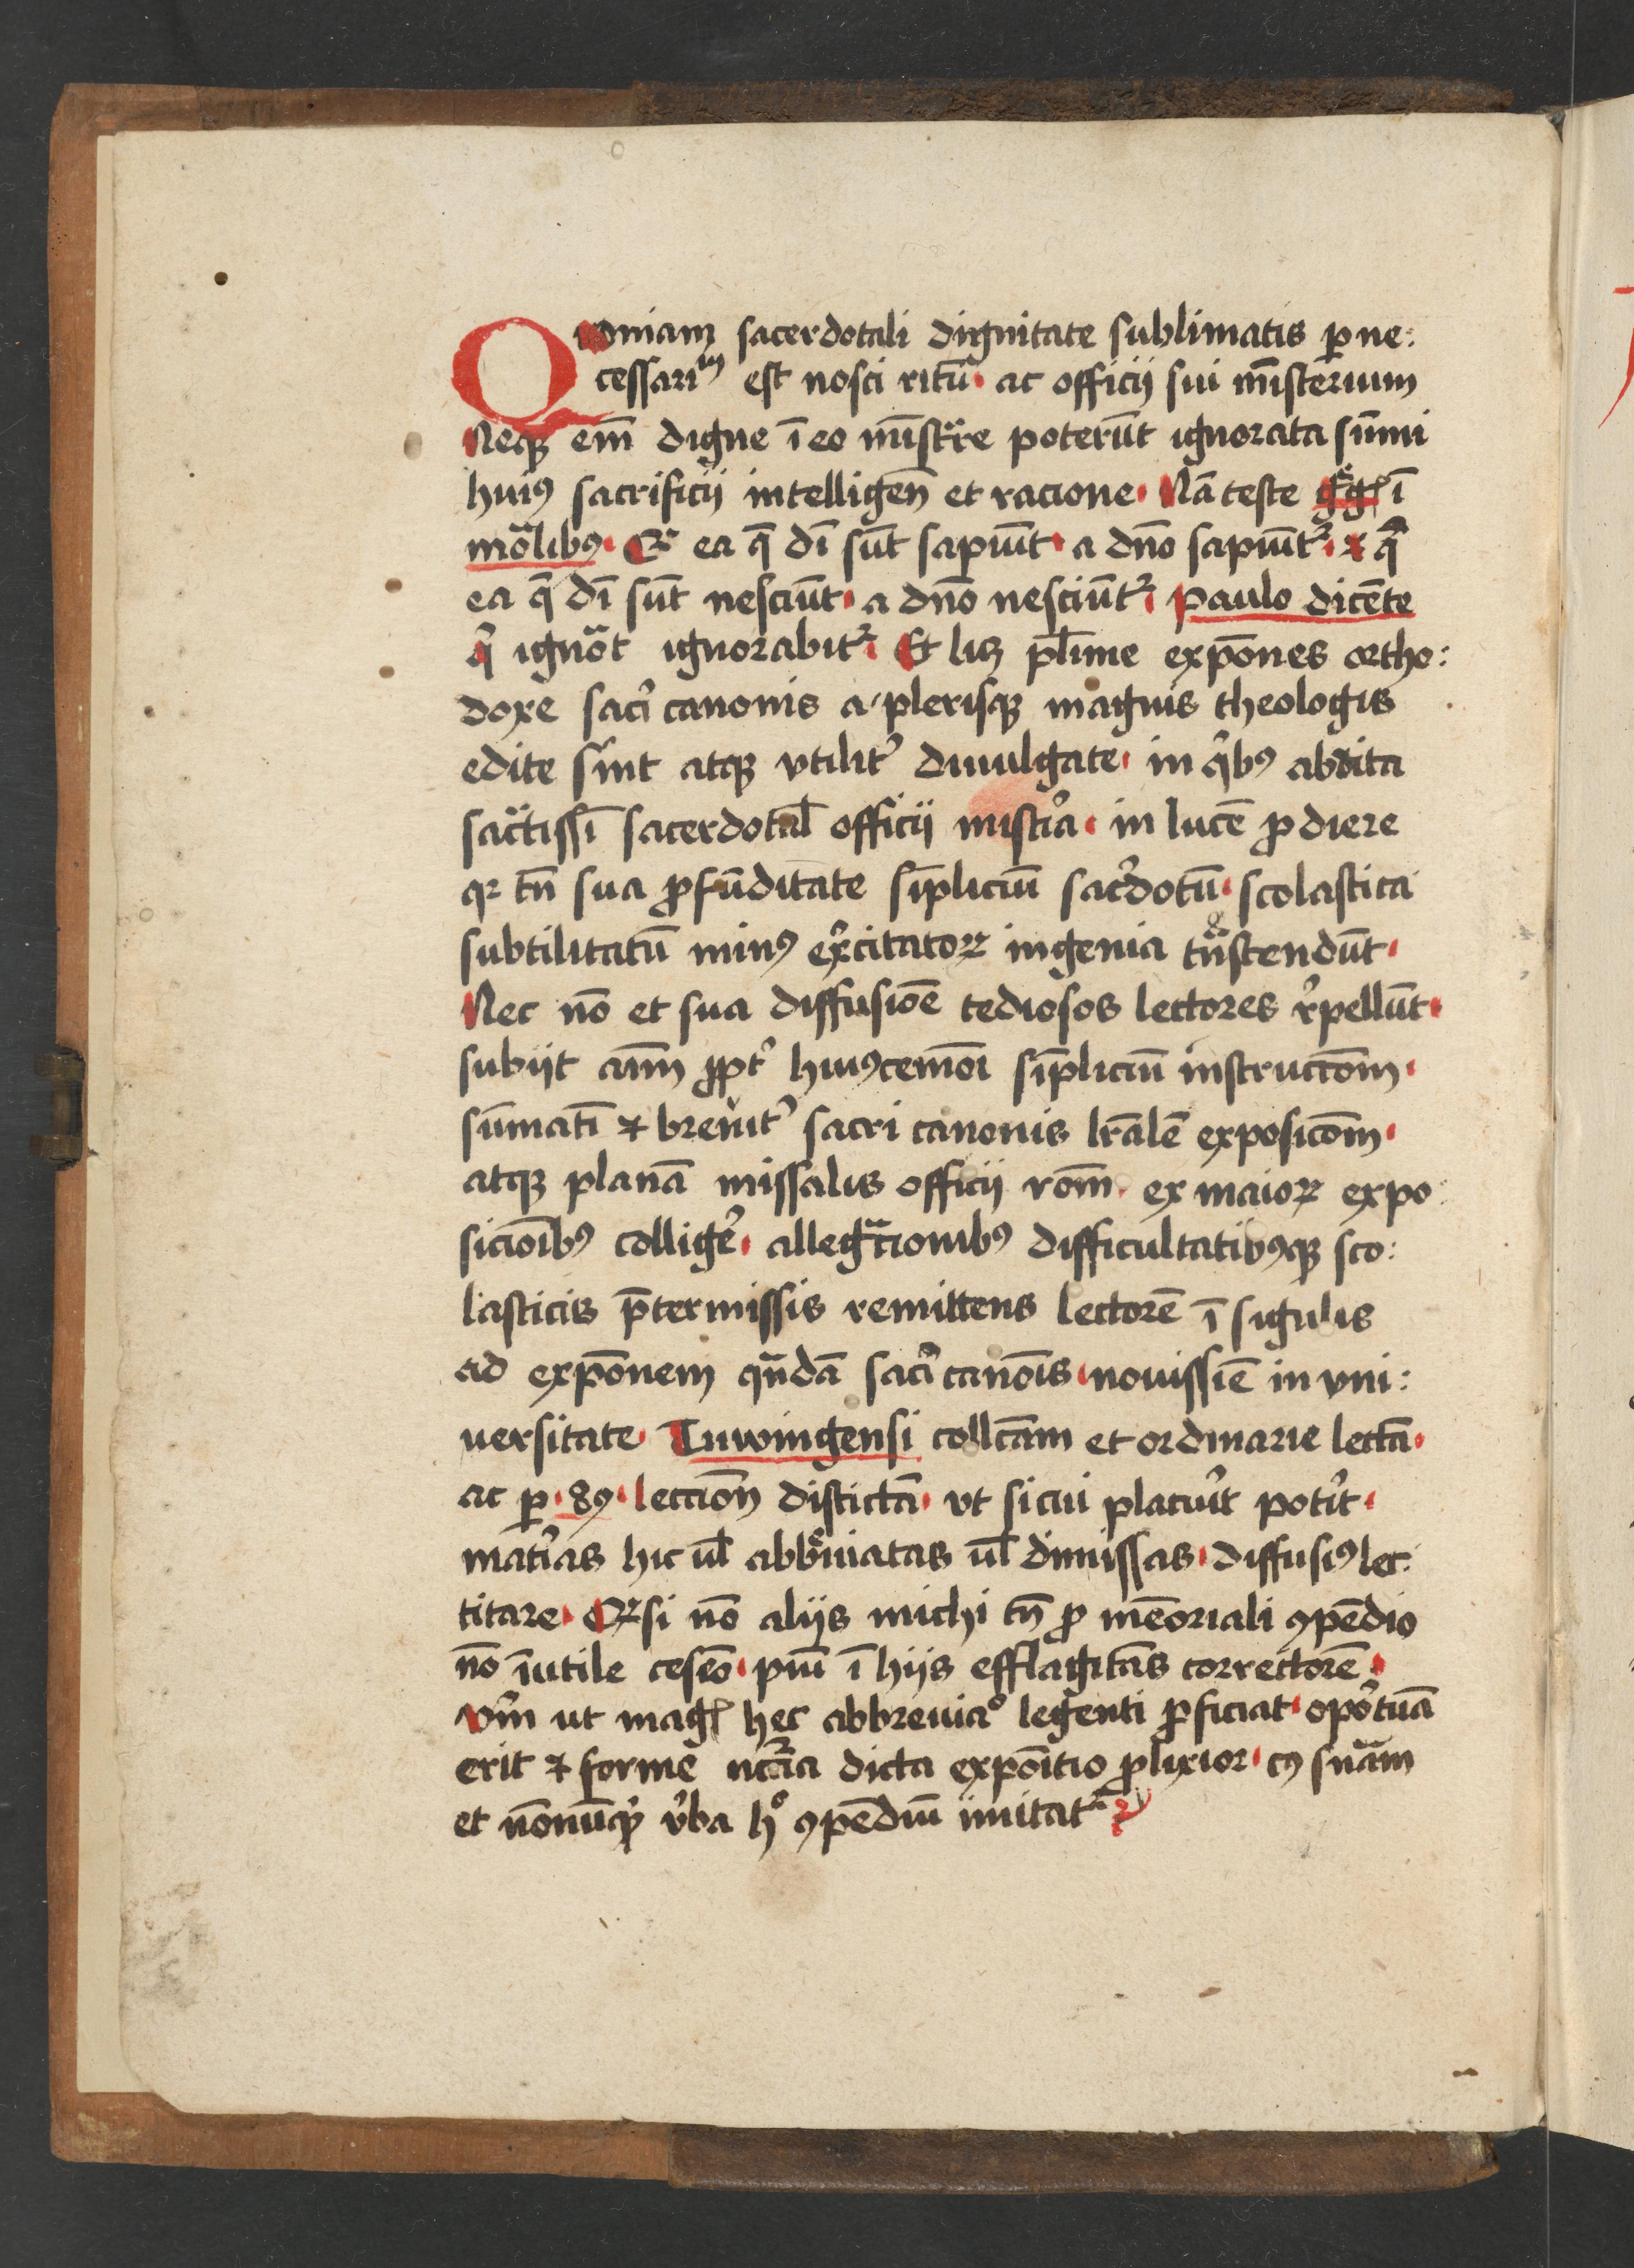 Quoniam sacerdotali dignitate sublimatis ꝑ ne:
cessariū est nosci ritū· ac officij sui mīsterium
Neqꝫ em̄ digne ī eo mīstrare poterūt ignorata sūmi
huiꝰ sacrificij intelligen̄ et racione· Nā teste grego ī
mōlibꝰ· Et ea q̄ dī sūt sapiūt· a dn̄o sapiūtur· & qui
ea q̄ dī sūt nesciūt· a dn̄o nesciūtur· paulo dicēte
qͥ ignoͣt ignorabitur· Et licꝫ pl'ime expōnes ortho:
doxe sacͥ canonis a plerisqꝫ magnis theologis
edite sint atqꝫ vtilit' diuulgate· in qͥbꝰ abdita
sāctissī sacerdotal' officij mist'ia· in lucē ꝓdiere
qꝛ tn̄ sua ꝓfūditate sīpliciū sac'dotū· scolastica
subtilitatū minꝰ ex'citatoꝝ ingenia tͣnstendūt·
Nec nō et sua diffusiōe tediosos lectores r'pellūt·
subijt aīm ꝓpt' huiꝰcemōi sīpliciū instructōm·
sūmatī & breuit' sacri canonis lr̄alē exposicōm·
atqꝫ planā missalis officij rom̄· ex maioꝝ expo:
sicioībꝰ collig'e· allegͣcionibꝰ difficultatibꝰqꝫ sco:
lasticis p̄termissis remittens lectorē ī sigulis
ad expōnem qn̄dā sacͥ canoīs· nouissīe in vni:
uersitate Tuwingensi collc̄am et ordinarie lectā·
ac ꝑ· 89· lection̄ distictā· vt si cui placu'it pot'it·
mat'ias hic ul' abbͤuiatas ul' dimissas· diffusiꝰ lec:
titare· Qꝛ si nō alijs michi tn̄ ꝓ mēoriali ꝯpēdio
nō īutile cēseo· piū ī hijs efflagitās correctorē·
vm̄ ut mag' hec abbreuiaᵒ legenti ꝓficiat· opo'tuā
erit & forme nc̄cͣia dicta expoītio ꝓlixior· cꝰ sn̄iam
et nōnūqͣ v'ba hᵒ ꝯpēdiū imitatur